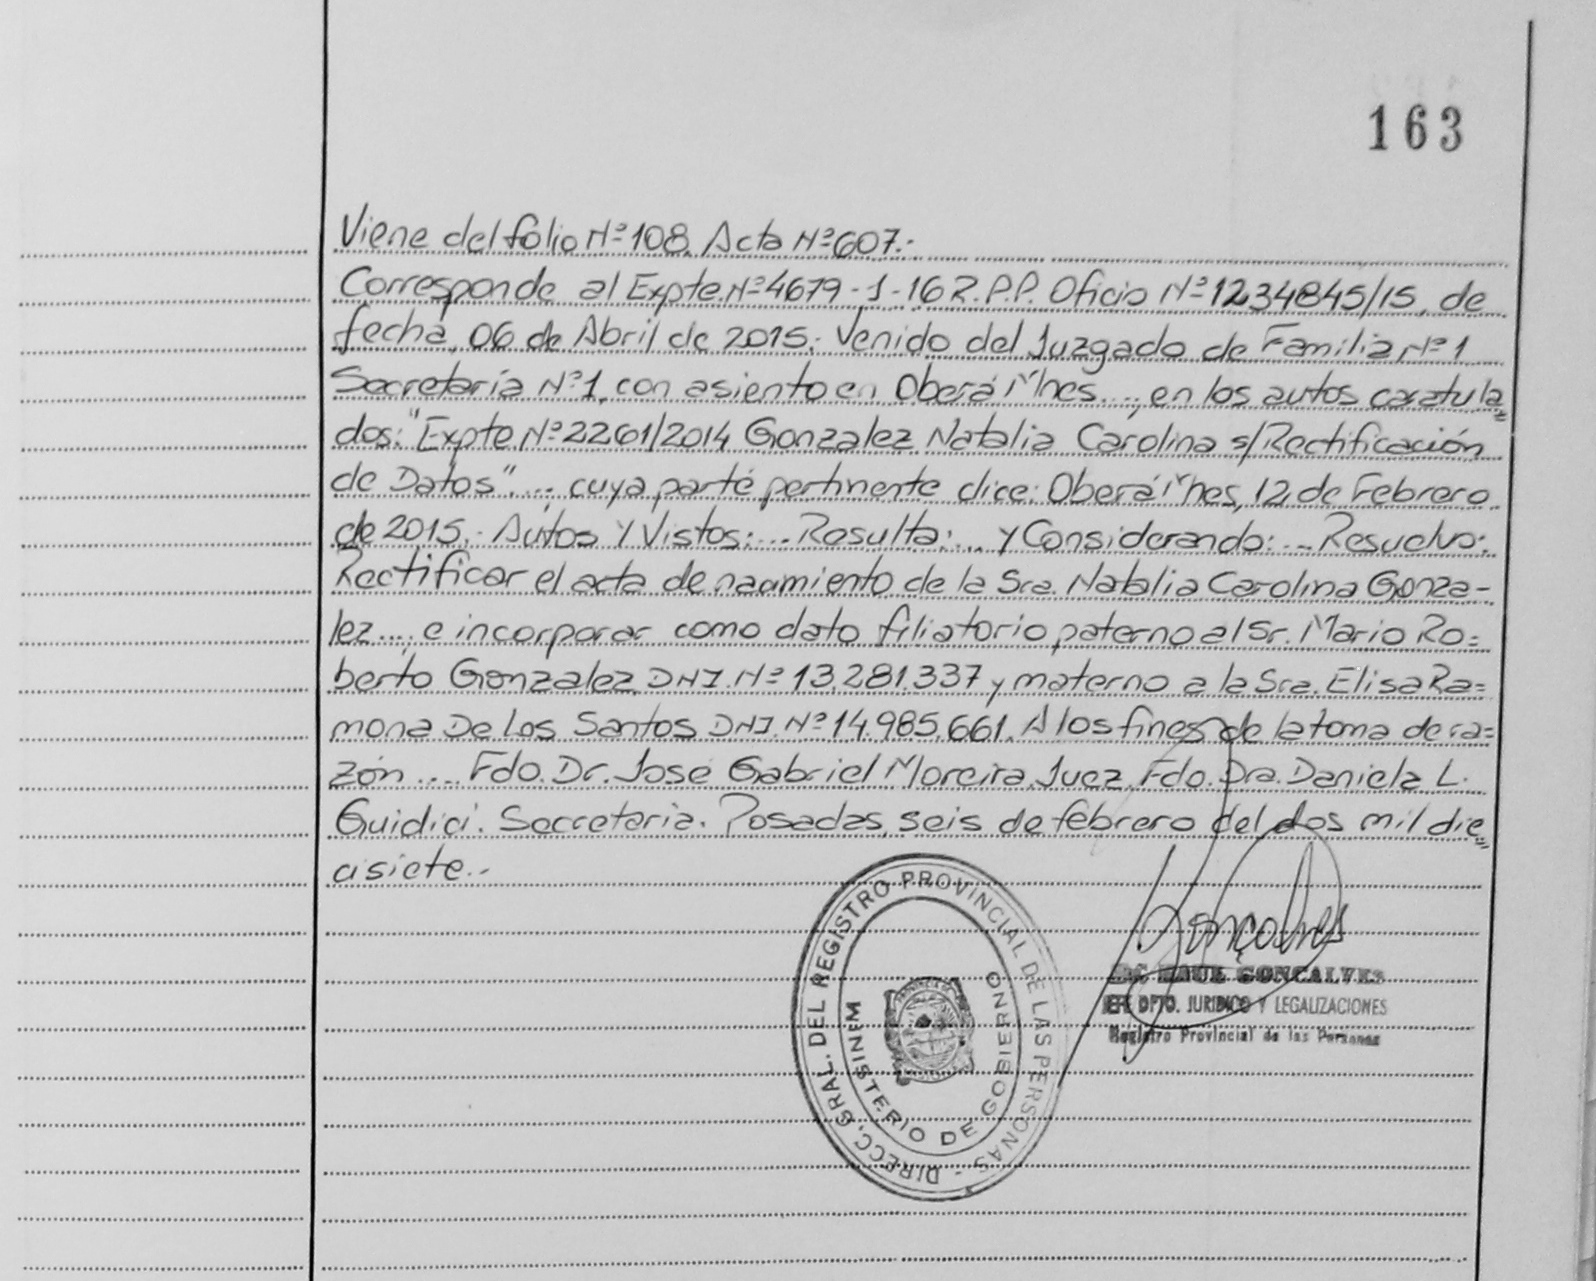 163
Viene del folio Nº 108. Acta Nº 607.-
Corresponde al Expte. Nº 4679-1-16 R.P.P. Oficio Nº 1234845/15, de
fecha, 06 de Abril de 2015.- Venido del Juzgado de Familia Nº 1
Secretaría Nº 1, con asiento en Oberá Mnes..., en los autos caratula=
dos: "Expte. Nº 2261/2014 Gonzalez Natalia Carolina s/Rectificación
de Datos"..., cuya parte pertinente dice: Oberá Mnes, 12, de Febrero
de 2015.- Autos Y Vistos:... Resulta:... y Considerando:... Resuelvo:
Rectificar el acta de nacimiento de la Sra. Natalia Carolina Gonza-
lez..., e incorporar como dato filiatorio paterno al Sr. Mario Ro=
berto Gonzalez DNI. Nº 13.281.337 y materno a la Sra. Elisa Ra=
mona De Los Santos DNI. Nº 14.985.661. A los fines de la toma de ra=
zón.... Fdo. Dr. José Gabriel Moreira. Juez. Fdo. Dra. Daniela L.
Guidici. Secretaria. Posadas, seis de febrero del dos mil die=
cisiete.-
DIRECC. GRAL. DEL REGISTRO PROVINCIAL DE LAS PERSONAS -
MINISTERIO DE GOBIERNO
Gonçalves
GONCALVES
DPTO. JURIDICO Y LEGALIZACIONES
Registro Provincial de las Personas